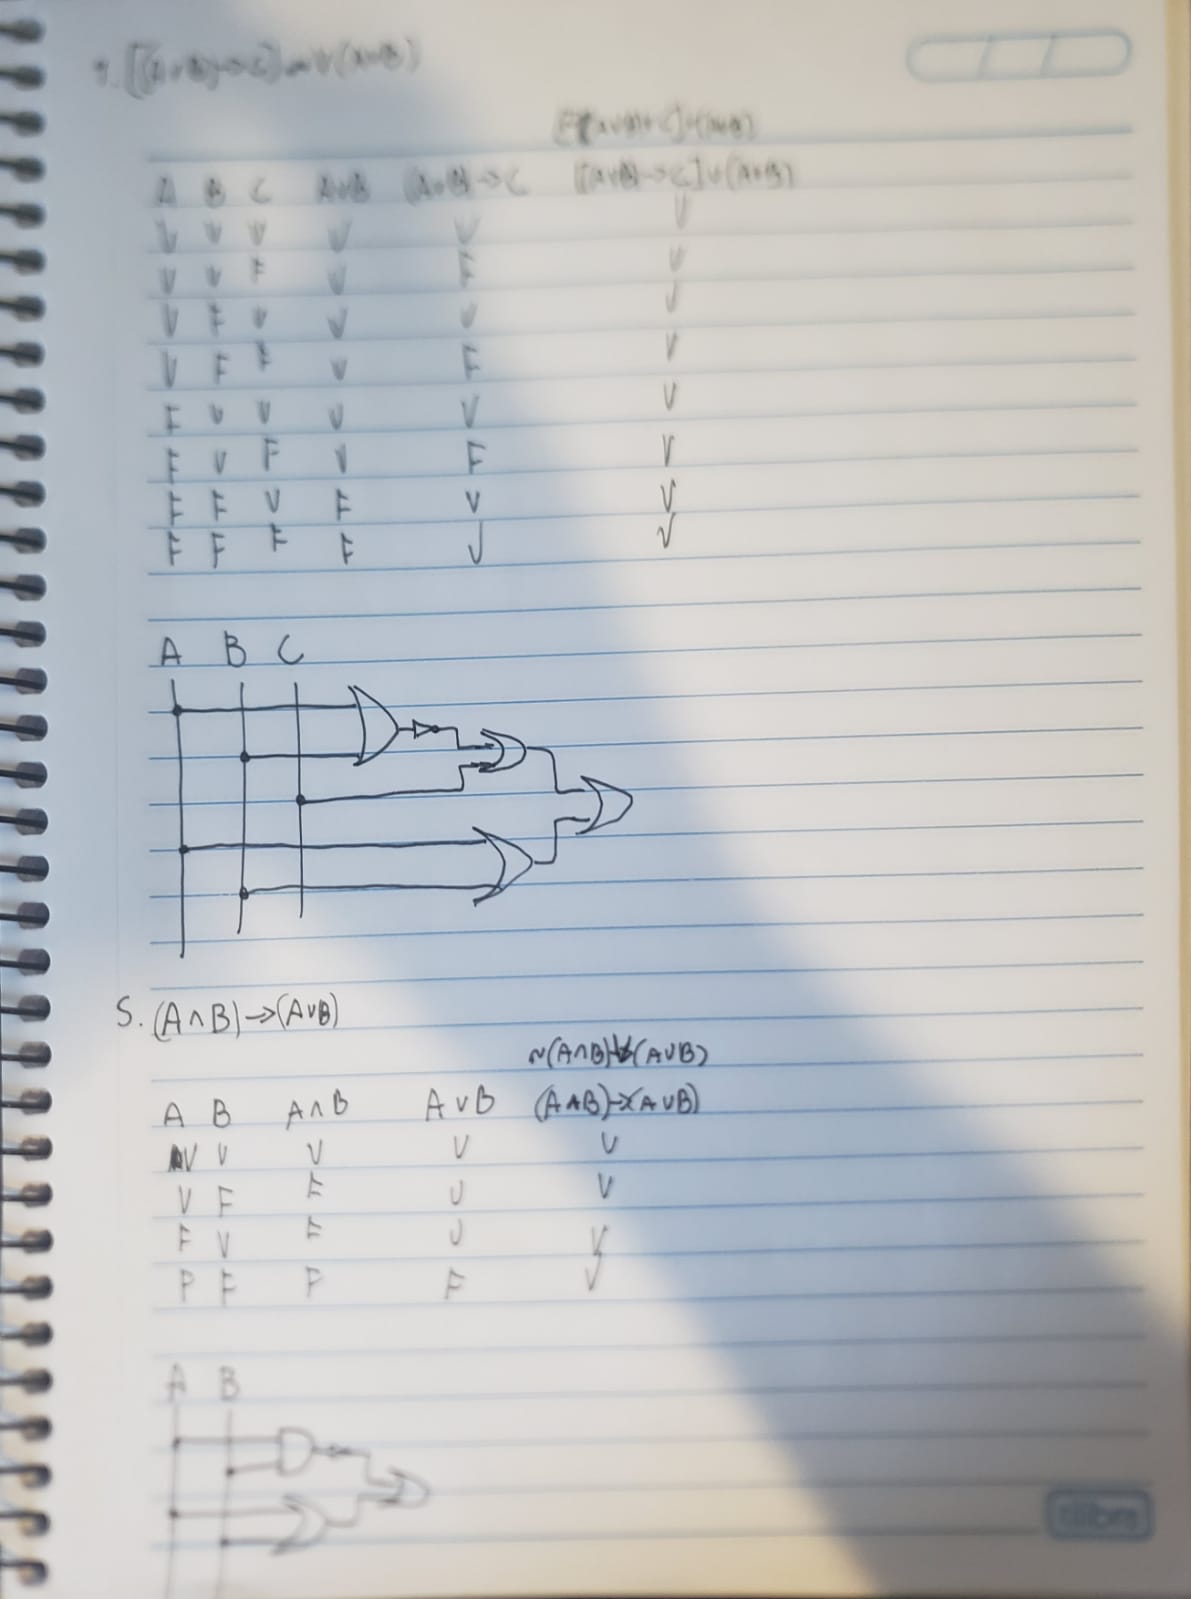 [(A∨B)→C]∨(A∨B)
A B C A∨B (A∨B)→C [(A∨B)→C]∨(A∨B)
V V V V V V
V V F V F V
V F V V V V
V F F V F V
F V V V V V
F V F V F V
F F V F V V
F F F F V V
A B C
5. (A∧B)→(A∨B)
~(A∧B)∨(A∨B)
A B A∧B A∨B (A∧B)→(A∨B)
V V V V V
V F F V V
F V F V V
F F F F V
A B
tilibra